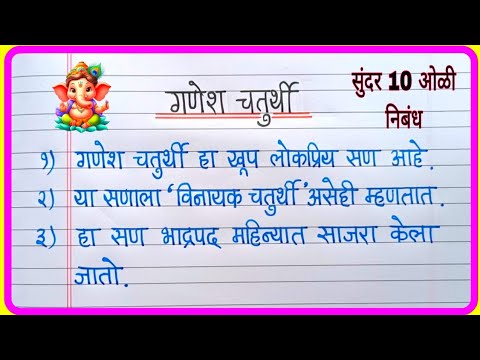 सुंदर 10 ओळी
निबंध
गणेश चतुर्थी
१) गणेश चतुर्थी हा खूप लोकप्रिय सण आहे.
२) या सणाला ‘विनायक चतुर्थी’ असेही म्हणतात.
३) हा सण भाद्रपद महिन्यात साजरा केला
जातो.